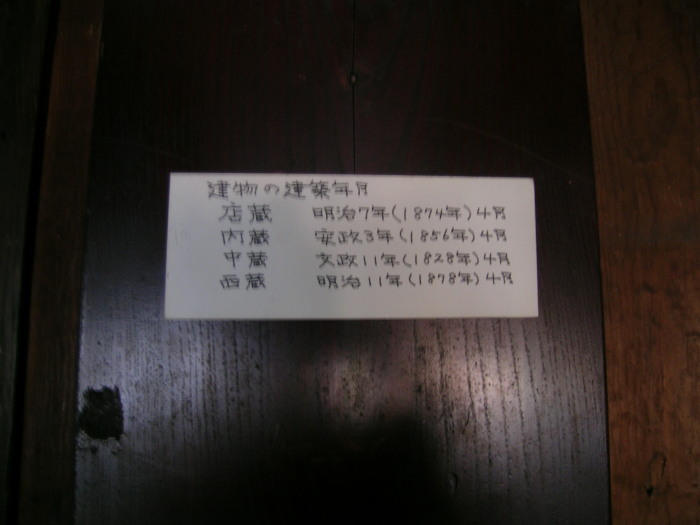 建物の建築年月
店蔵 明治7年(1874年)4月
内蔵 安政3年(1856年)4月
中蔵 文政11年(1828年)4月
西蔵 明治11年(1878年)4月